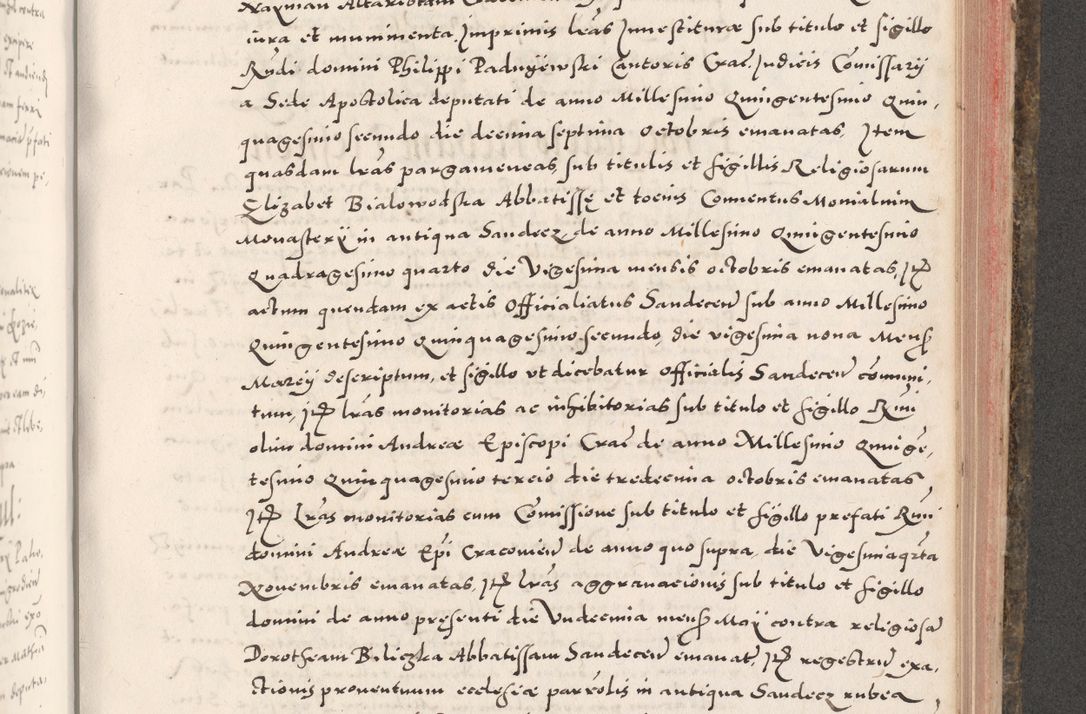 iura et munimenta, Imprimis lr̃as Inuestituræ sub titulo et sigillo
Rñdi domini Philippi Padnyewski Cantoris Crac̃. Iudicis Com̃issarij
a Sede Apostolica deputati de anno Millesimo Quingentesimo Quin,
quagesimo secundo die decima septima octobris emanatas, Item
quasdam lr̃as pargameneas, sub titulis et sigillis Religiosarum
Elizabet Bialowodska Abbatissę et tocius Conuentus Monialium
Monastery in antiqua Sandecz, de anno Millesimo Quingentesimo
Quadragesimo quarto die Vigesima mensis octobris emanatas, Itẽ
actum quendam ex actis Officialiatus Sandecen̄ sub anno Millesimo
Quingentesimo Quinquagesimo secundo, die vigesima nona Mens̃
Marcij descriptum, et sigillo vt dicebatur officialis Sandecen̄ com̃uni,
tum, Itẽ lr̃as monitorias ac inhibitorias sub titulo et sigillo Rm̃i
olim domini Andreæ Episcopi Crac̃ de anno Millesimo Quingẽ,
tesimo Quinquagesimo tercio die tredecima octobris emanatas
Itẽ Lr̃as monitorias cum Com̃issione sub titulo et sigillo prefati Rm̃i
domini Andreæ Ep̃i Cracouien̄ de anno quo supra, die Vigesima qr̃ta
Nouembris emanatas, Itẽ lr̃as aggrauacionis sub titulo et sigillo
domini de anno presenti die Vndecima mens̃ Maij contra religiosã
Dorotheam Biliczka Abbatissam Sandecen̄ emanat̃, Itẽ regestrũ exa,
ctionis prouentuum ecclesiæ parr̃olis in antiqua Sandecz rubea